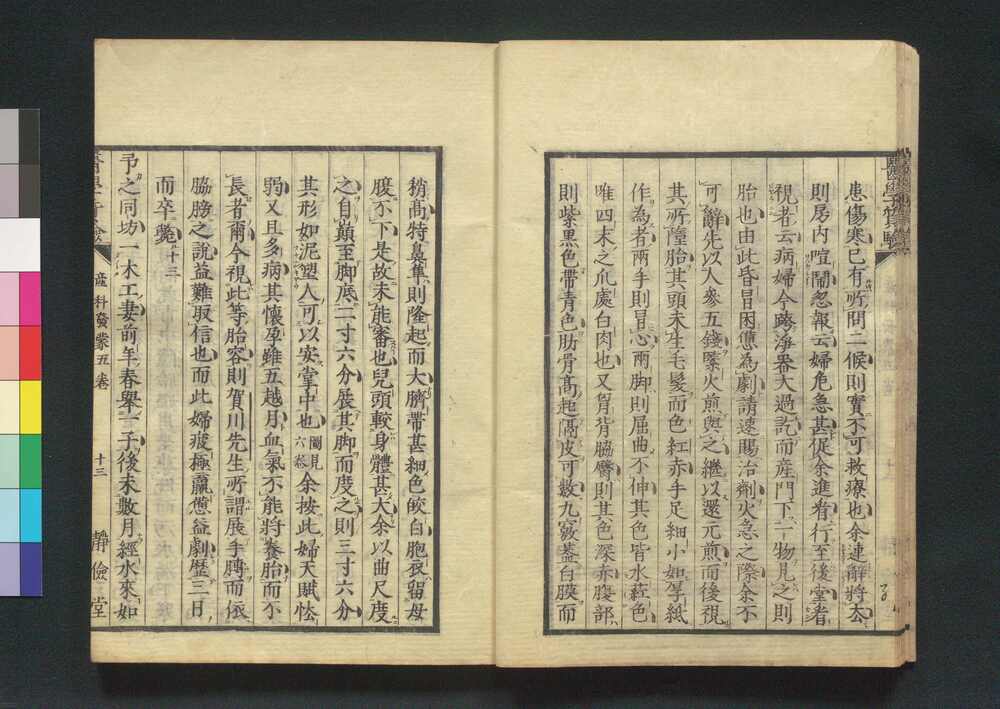 患傷寒已有所問二候則實不可救療也余連辭將去
則房内喧鬧忽報云婦危急甚促余進者行至後堂者
視者云病婦今跨淨器大過訖而產門下一物見之則
胎也由此昏冒困憊為劇請速賜治劑火急之際余不
可辭先以人參五錢槩火煎與之繼以還元煎而後視
其所隨胎其頭未生毛髮而色紅赤手足細小如厚紙
作為者兩手則冒心兩脚則屈曲不伸其色皆水葒色
唯四末之爪處白肉也又肩背脇臀則其色深赤腹部
則紫黑色帶青色肋骨高起隔皮可數九竅蓋白膜而
稍高特鼻隼則隆起而大臍帶甚細色皎白胞衣留母
腹不下是故未能審也兒頭較身體甚大余以曲尺度
之自巔至脚底二寸六分展其脚而度之則三寸六分
其形如泥塑人可以安掌中也圖見六卷余按此婦天賦怯
弱又且多病其懷孕雖五越月血氣不能將養胎而不
長者爾今視此等胎容則賀川先生所謂展手髀而依
脇膀之說益難取信也而此婦疲極羸憊益劇歷三日
而卒斃十三
予之同坊一木工妻前年春舉一子後未數月經水來如
產科發蒙五卷
十三
靜儉堂